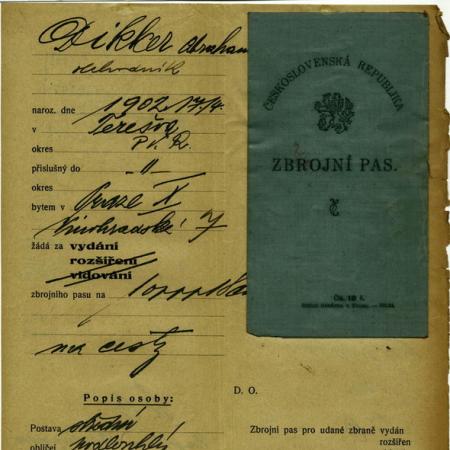 Dikker Abraham
obchodník
naroz. dne 1902 17/4.
v Terešva
okres P. R.
příslušný do "
okres
bytem v Praze X
7
žádá za vydání
rozšíření
vidování
zbrojního pasu na
na cesty
Popis osoby:
Postava střední
obličej podlouhlý
ČESKOSLOVENSKÁ REPUBLIKA
ZBROJNÍ PAS.
Č
D. O.
Zbrojní pas pro udané zbraně vydán
rozšířen